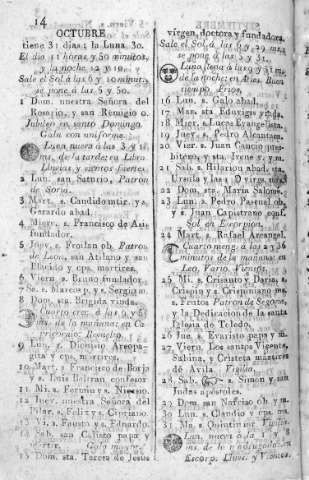 14
OCTUBRE
tiene 31 dias; la Luna 30.
El dia 11 horas, y 50 minutos,
y la noche 12 y 10.
Sale el Sol á las 6 y 10 minut.
se pone á las 5 y 50.
1 Dom. nuestra Señora del
Rosario, y san Remigio o.
Jubileo en santo Domingo.
Gala con uniforme.
Luna nueva á las 3 y
ms. de la tarde: en Libra
Lluvias, y vientos fuertes.
2 Lun. san Saturio, Patron
de Soria.
3 Mart. s. Candido mtir. y s.
Gerardo abad.
4 Mierc. s. Francisco de Asis
fundator.
5 Juev. s. Froilan ob. Patron
de Leon, san Atilano y san
Placido y cps. martires.
6 Viern. s. Bruno fundador.
7 Sa. s. Marcos p. y s. Sergio m.
8 Dom. sta. Brigida viuda.
Cuarto crec. á las 9 y
ms. de la mañana: en Ca
pricornio: Revuelto.
9 Lun. s. Dionisio Areopa-
gita y cps. martires.
10 Mart. s. Francisco de Borja
y s. Luis Beltran, confesor.
11 Mi. s. Fermin y s. Nicasio.
12 Juev. nuestra Señora del
Pilar, s. Felix y s. Cipriano.
13 Vi. s. Fausto y s. Eduardo.
14 Sab. san Calixto papa y
mártir. Gala mayor.
15 Dom. sta. Teresa de Jesus
virgen, doctora y fundadora.
Sale el Sol á las 6 y 29 ms.
se pone á las 5 y 31.
Luna llena á las 9 y ms.
de la noche: en Aries. Buen
tiempo, Frios.
16 Lun. s. Galo abad.
17 Mar. sta Eduvigis vnda.
18 Mier. s. Lucas Evangelista.
19 Juev. s. Pedro Alcantara.
20 Vier. s. Juan Cancio pres-
bitero, y sta. Irene v. y m.
21 Sab. s. Hilarion abad, sta.
Ursula y las 11 D virgs. ms.
22 Dom. sta. Maria Salome.
23 Lun. s. Pedro Pascual ob.
y s. Juan Capistrano conf.
Sol en Escorpio.
24 Mart. s. Rafael Arcangel.
Cuarto meng. á las 2 y 36
minutos de la mañana: en
Leo, Vario, Vientos.
25 Mi. s. Crisanto y Daria, s.
Crispin y s. Crispiniano ms.
s. Frutos Patron de Segovia,
y la Dedicacion de la santa
Iglesia de Toledo.
26 Jue. s. Evaristo papa y m.
27 Viern. Los santos Vicente,
Sabina, y Cristeta martires
de Avila. Vigilia.
28 Sab. s. Simon y san
Judas apostoles.
29 Dom. san Narciso ob. y m.
30 Lun. s. Claudio y cps. ms.
31 Ma. s. Quintin mr. Vigilia.
Lun. nueva á la 1 y
ms. de la madrugada: en
Escorp. Lluvs. y Vientos.